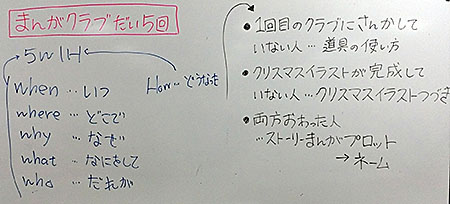 まんがクラブだい5回
5W1H
when…いつ
where…どこで
why…なぜ
what…なにをして
who…だれが
How…どうなった
•1回目のクラブにさんかして
いない人…道具の使い方
•クリスマスイラストが完成して
いない人…クリスマスイラストつづき
•両方おわった人
…ストーリーまんがプロット
→ネーム